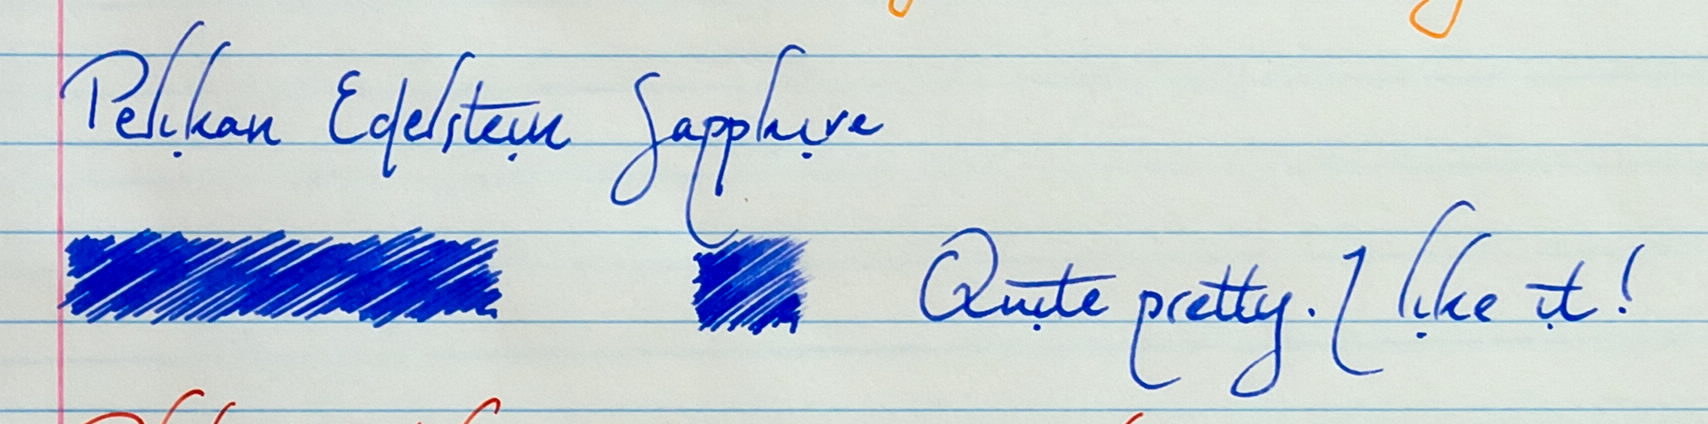 Pelikan Edelstein Sapphire
Quite pretty. I like it!